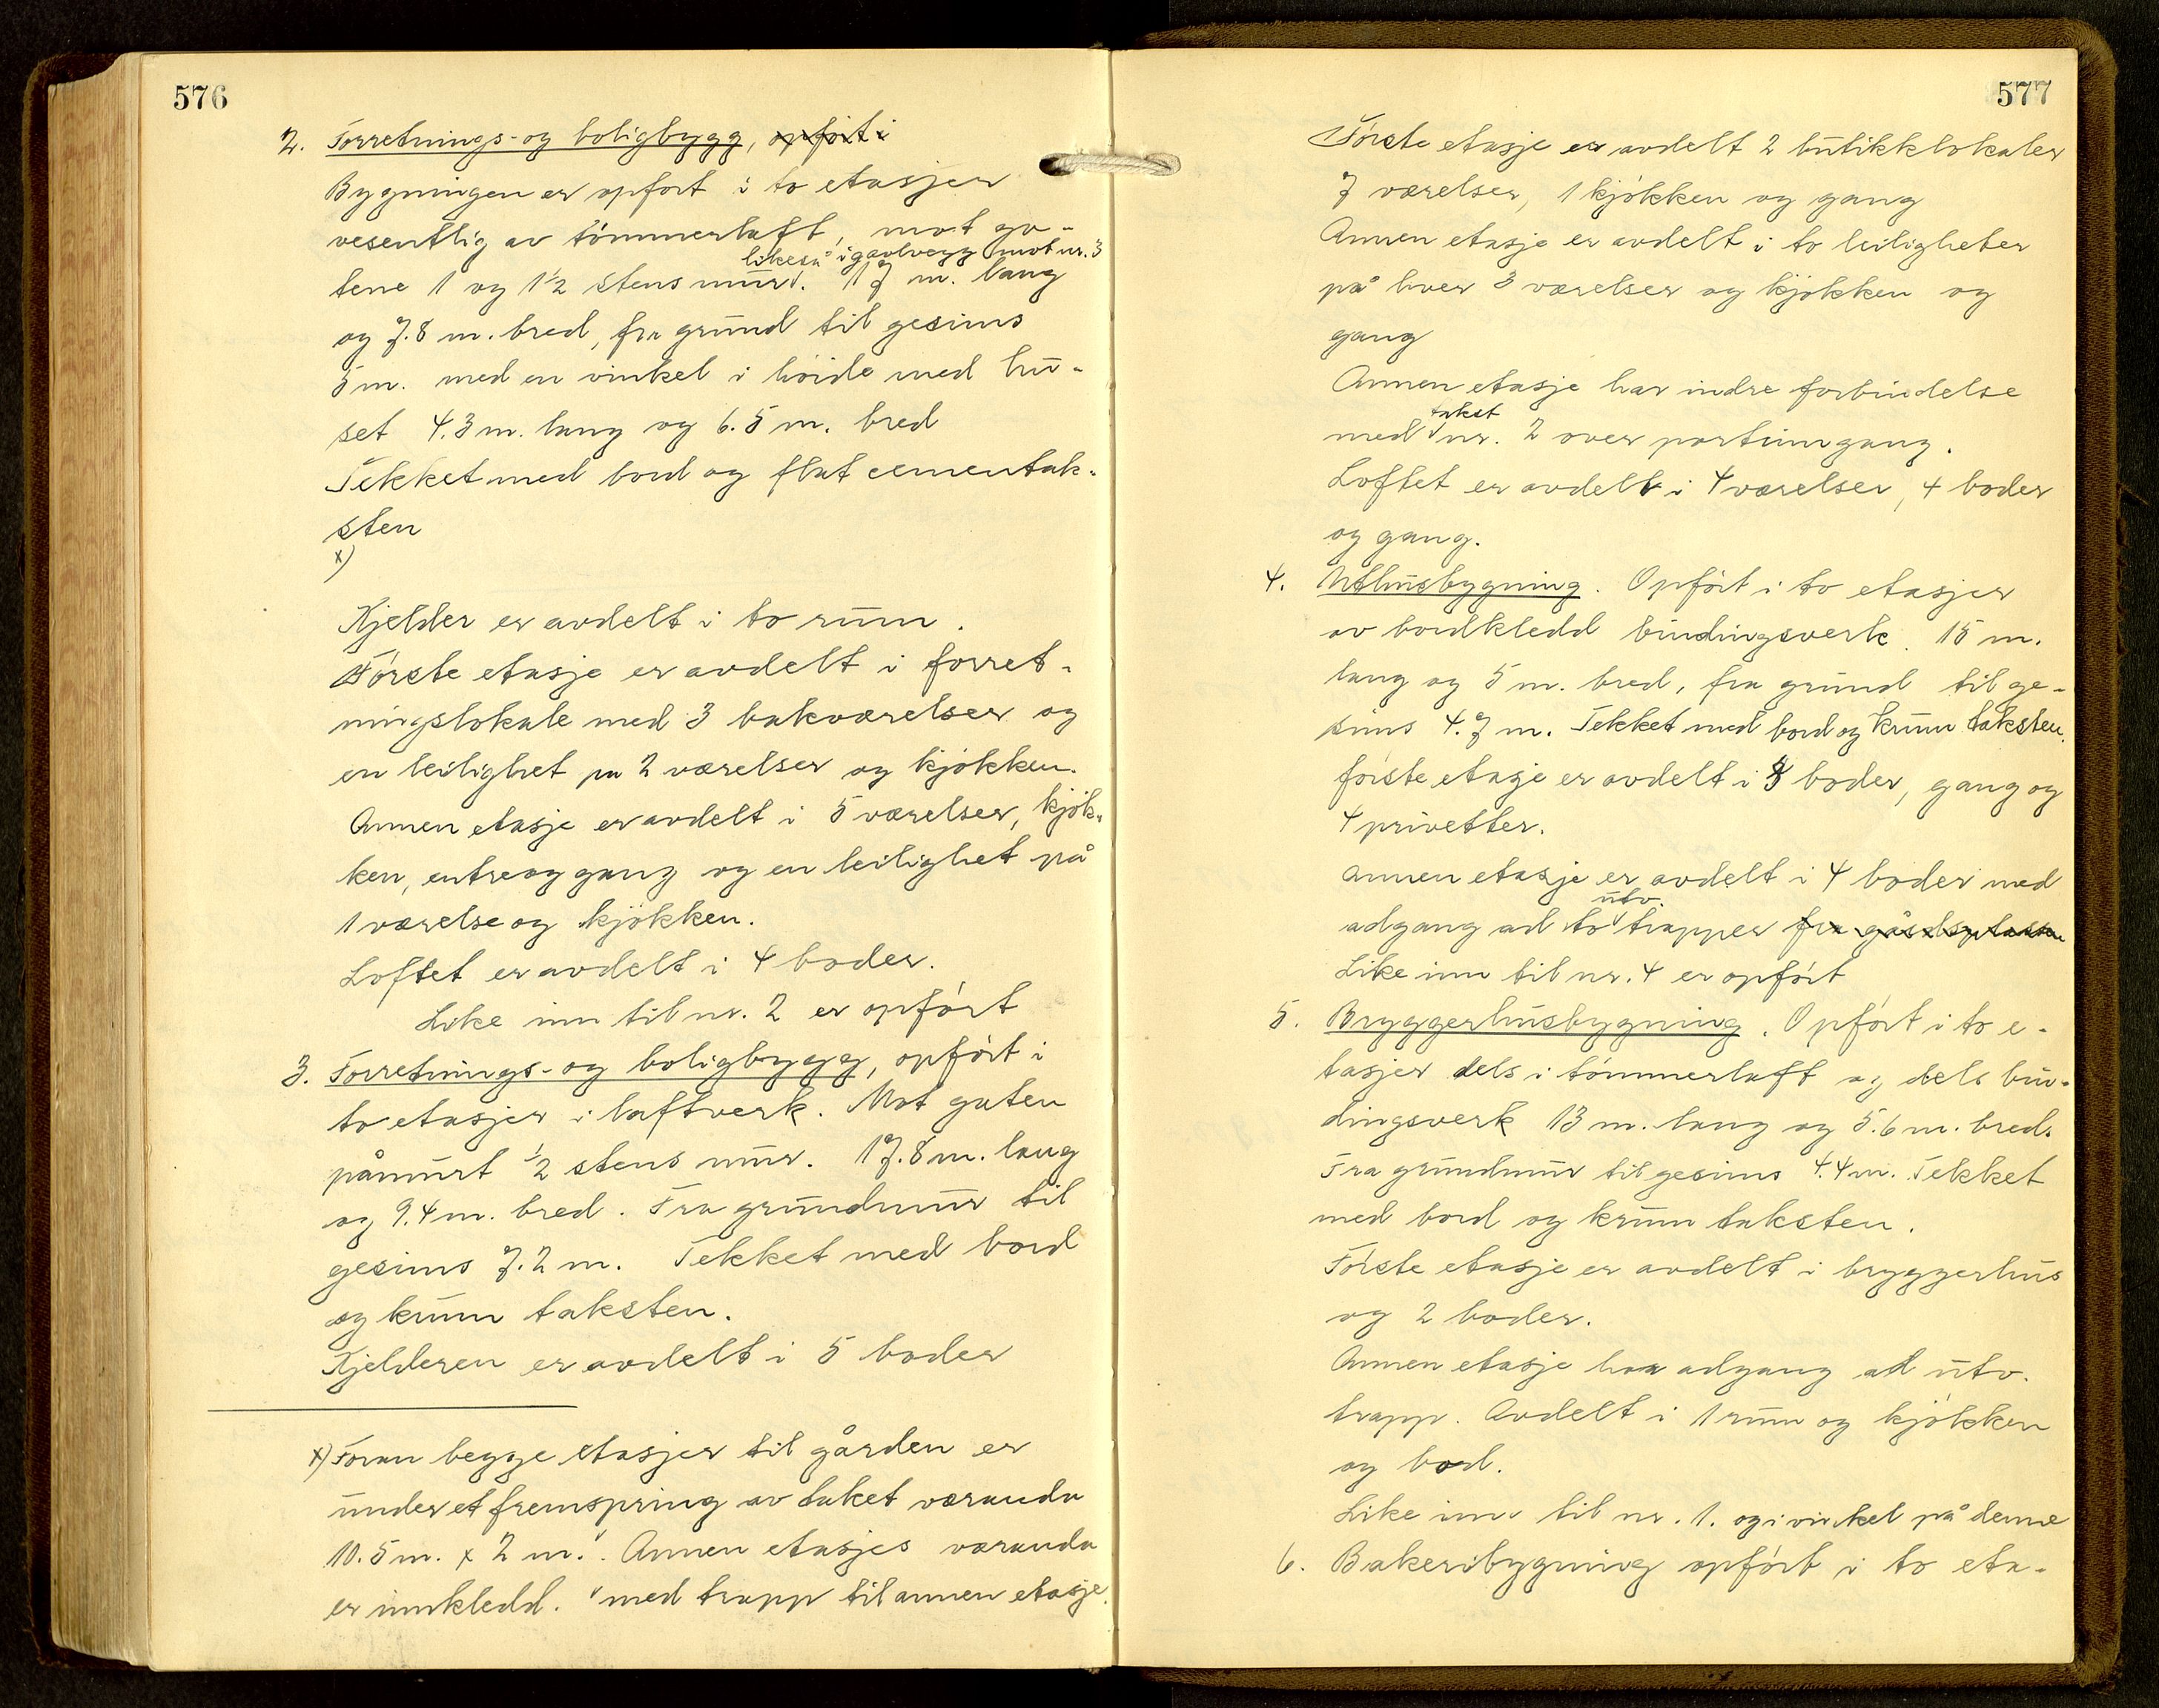 576
2. Forretnings- og boligbygg, opført i
Bygningen er opført i to etasjer
vesentlig av tømmerlaft, mot ga-
likeså i gavlvegg mot nr. 3
tene 1 og 1½ stens mur. 17 m. lang
og 7.8 m. bred, fra grund til gesims
5 m. med en vinkel i høide med hu-
set 4.3 m. lang og 6.5 m. bred
Tekket med bord og flat cementtak-
sten
x)
Kjelder er avdelt i to rum.
Første etasje er avdelt i forret-
ningslokale med 3 bakværelser og
en leilighet pa 2 værelser og kjøkken.
Annen etasje er avdelt i 5 værelser, kjøk-
ken, entre og gang og en leilighet på
1 værelse og kjøkken.
Loftet er avdelt i 4 boder.
Like inn til nr. 2 er opført
3. Forretnings- og boligbygg, opført i
to etasjer i laftverk. Mot gaten
påmurt ½ stens mur. 17.8 m. lang
og 9.4 m. bred. Fra grundmur til
gesims 7.2 m. Tekket med bord
og krum taksten.
Kjelderen er avdelt i 5 boder
x) Foran begge etasjer til gården er
under et fremspring av taket veranda
10.5 m. x 2 m.v. Annen etasjes veranda
er innkledd. v med trapp til annen etasje.
577
Første etasje er avdelt 2 butikklokaler
7 værelser, 1 kjøkken og gang
Annen etasje er avdelt i to leiligheter
på hver 3 værelser og kjøkken og
gang
Annen etasje har indre forbindelse
takst
med nr. 2 over portrumgang.
Loftet er avdelt i 4 værelser, 4 boder
og gang.
4. Uthusbygning. Opført i to etasjer
av bordkledd bindingsverk. 15 m.
lang og 5 m. bred, fra grund til ge-
sims 4.7 m. Tekket med bord og krum taksten.
første etasje er avdelt i 8 boder, gang og
4 privetter.
annen etasje er avdelt i 4 boder med
utv.
adgang ad to trapper fra gårdsplassen
Like inn til nr. 4 er opført
5. Bryggerhusbygning. Opført i to e-
tasjer dels i tømmerlaft og dels bin-
dingsverk 13 m. lang og 5.6 m. bred.
Fra grundmur til gesims 4.4 m. Tekket
med bord og krum taksten.
Første etasje er avdelt i bryggerhus
og 2 boder.
Annen etasje har adgang ad utv.
trapp. Avdelt i 1 rum og kjøkken
og bod.
Like inn til nr. 1. og i vinkel på denne
6. Bakeribygning opført i to eta-